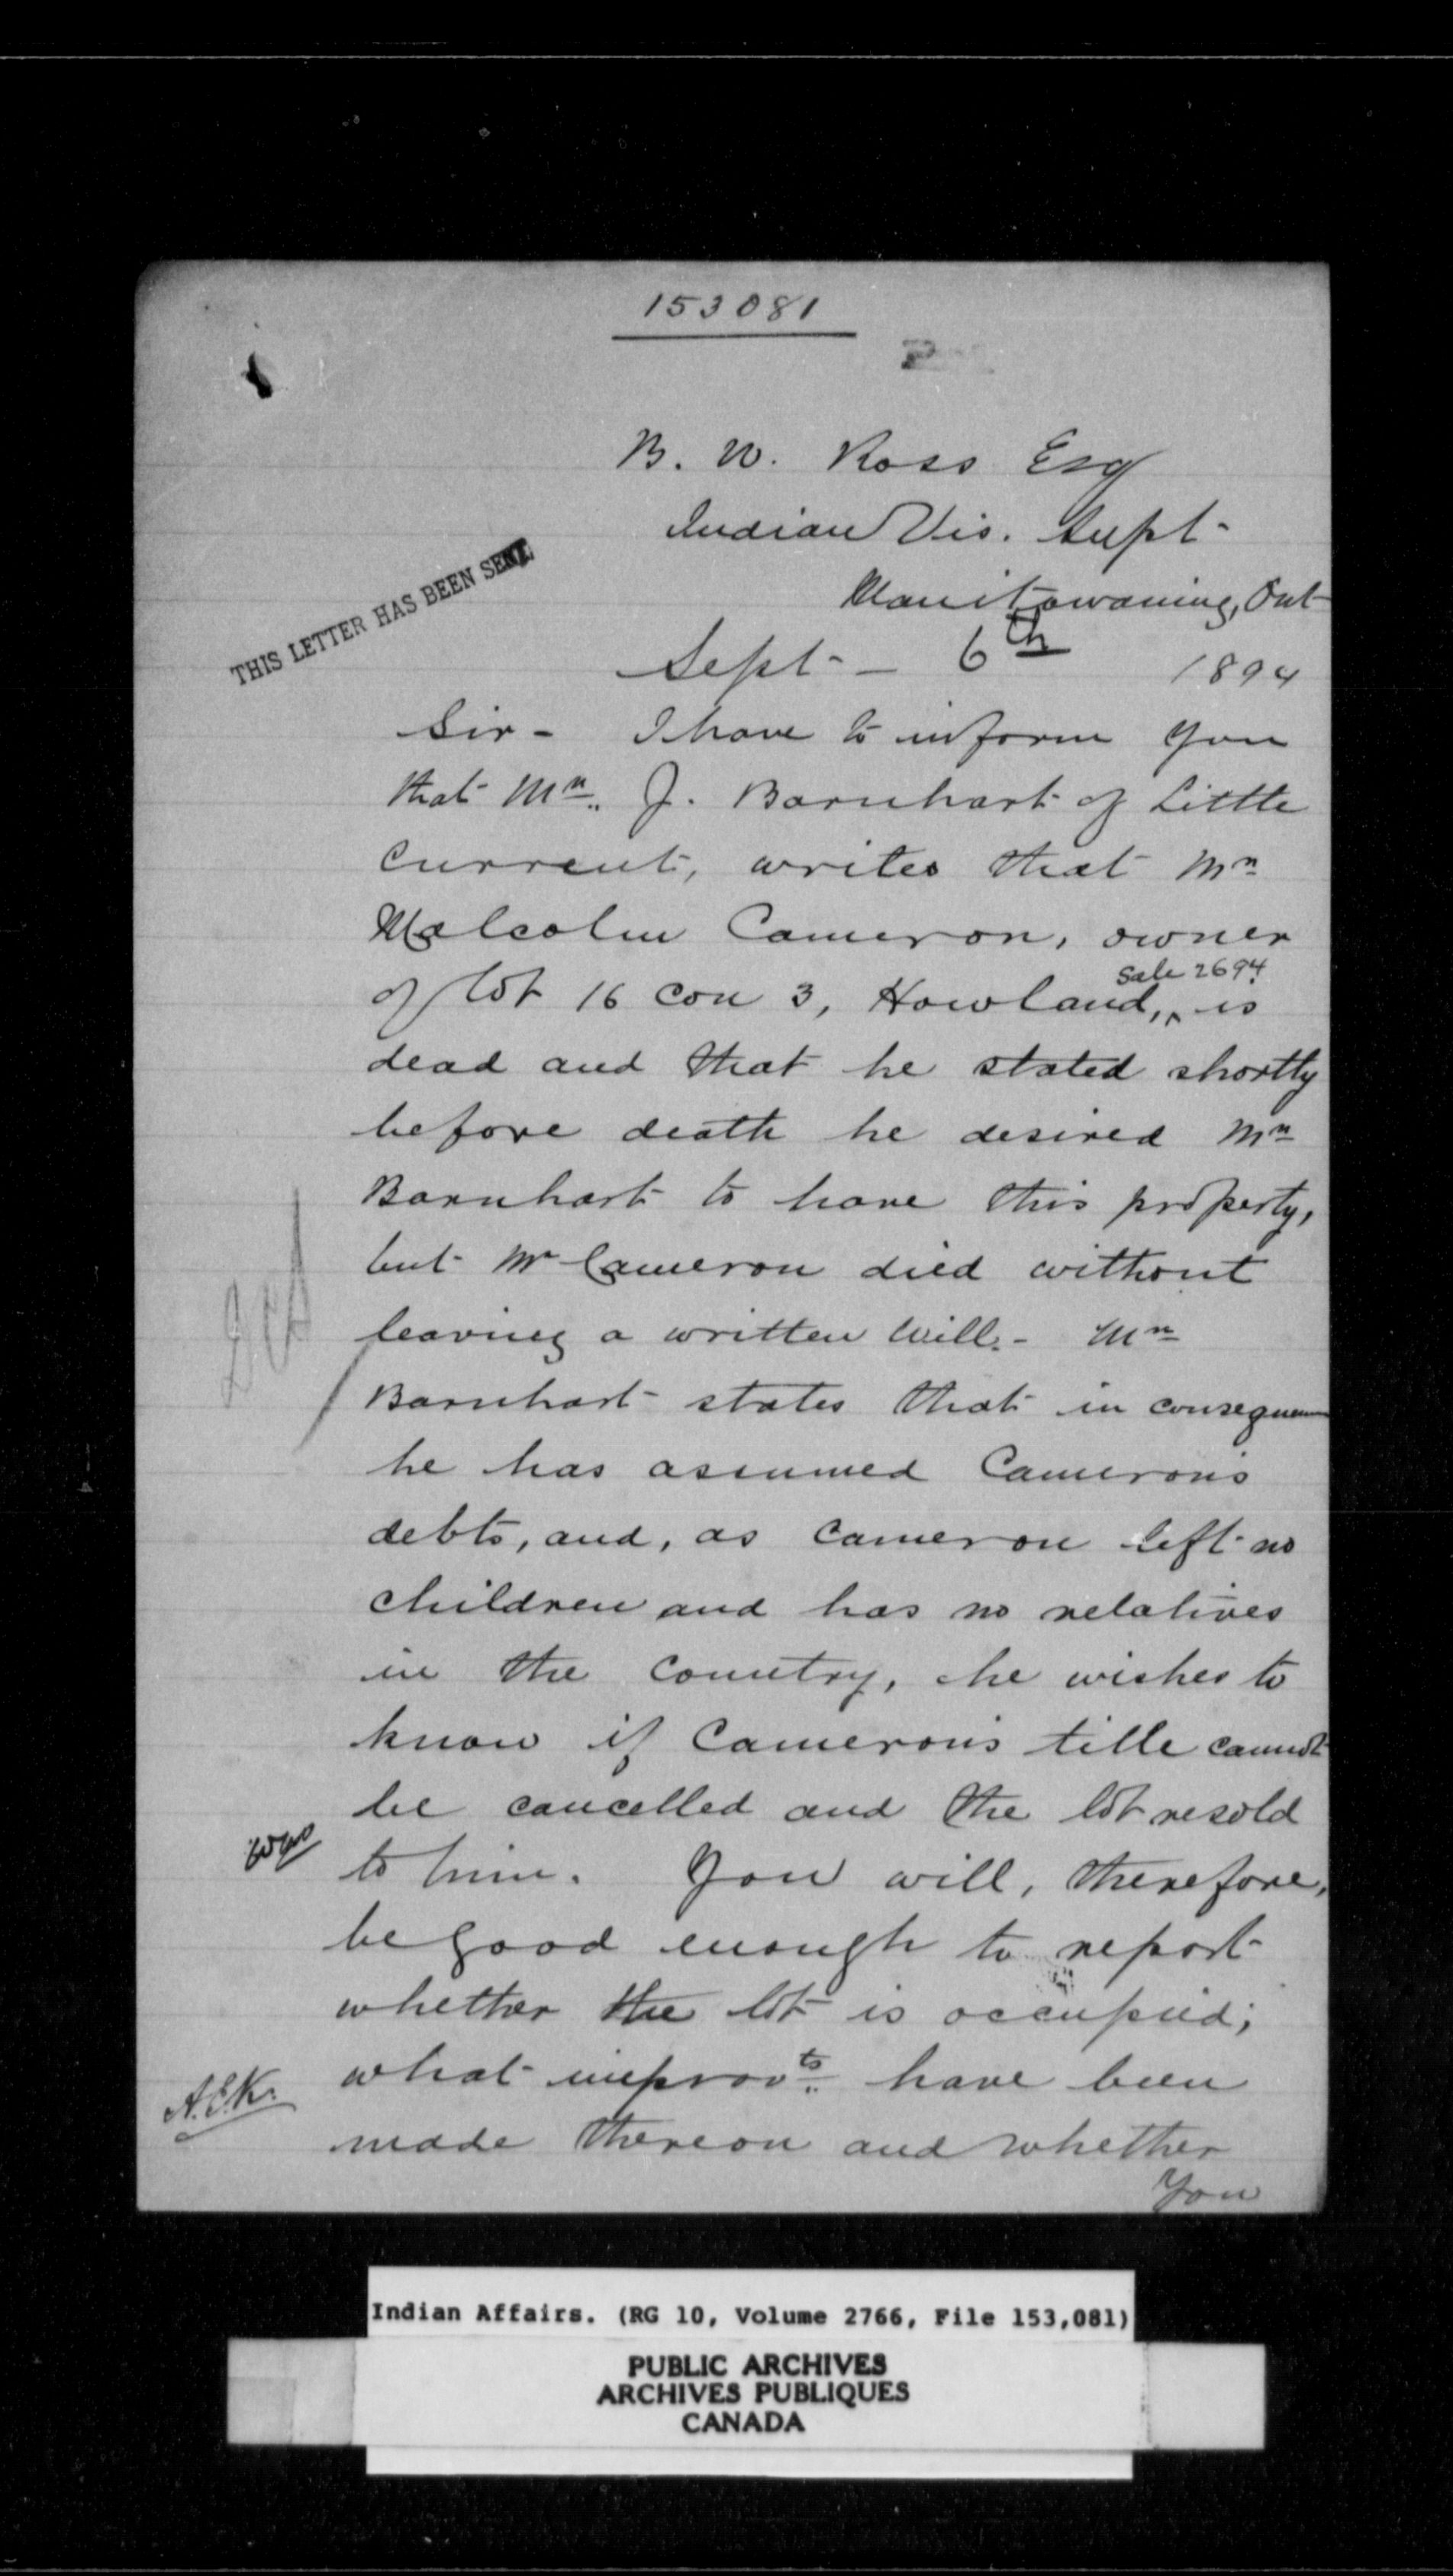 153081
B. W. Ross Esq
Indian Vis. Supt
Manitowaning, Ont
THIS LETTER HAS BEEN SENT.
Sept - 6th 1894
Sir - I have to inform you
that Mr. J. Barnhart of Little
Current, writes that Mr
Malcolm Cameron, owner
Sale 2694
of lot 16 con 3, Howland, is
dead and that he stated shortly
before death he desired Mr
Barnhart to have this property,
but Mr Cameron died without
leaving a written will. - Mr
Barnhart states that in consequence
he has assumed Cameron's
debts, and, as Cameron left no
children and has no relatives
in the country, he wishes to
know if Cameron's title cannot
be cancelled and the lot resold
to him. You will, therefore,
be good enough to report
whether the lot is occupied;
what improvts. have been
A.E.K.
made thereon and whether
you
Indian Affairs. (RG 10, Volume 2766, File 153,081)
PUBLIC ARCHIVES
ARCHIVES PUBLIQUES
CANADA